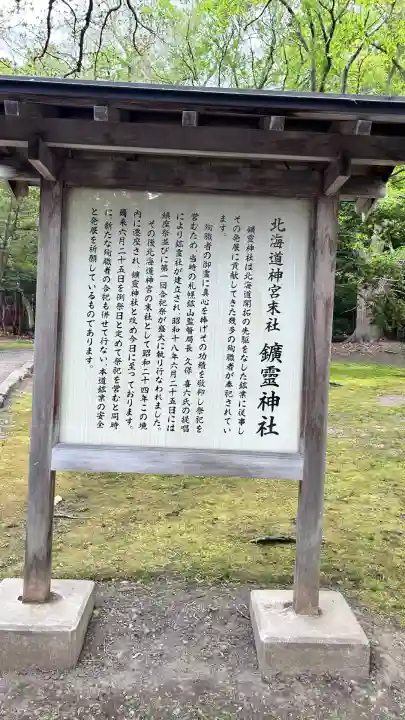 北海道神宮末社 鑛霊神社
鑛霊神社は北海道開拓の先駆をなした鉱業に従事し
その発展に貢献してきた幾多の殉職者が奉祀されてい
ます。
殉職者の御霊に真心を捧げその功績を敬仰し祭祀を
営むため、当時の札幌鉱山監督局長 久保喜六氏の提唱
により鑛霊社が建立され、昭和十八年六月二十五日には
鎮座祭並びに第一回合祀祭が盛大に執り行なわれました。
その後北海道神宮の末社として昭和二十四年この境
内に遷座され、鑛霊神社と改め今日に至っております。
爾来六月二十五日を例祭日と定めて祭祀を営むと同時
に、新たな殉職者の合祀も併せて行ない、本道鉱業の安全
と発展を祈願しているものであります。